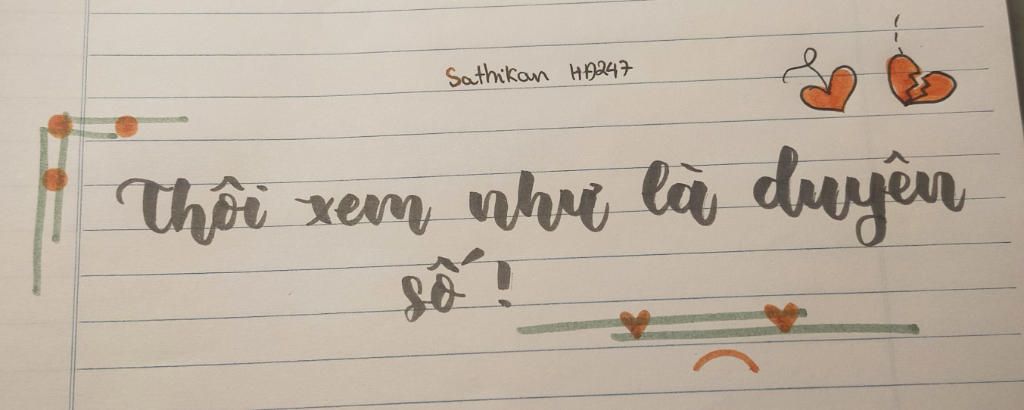 Sathikan HA247
Thôi xem như là duyên
số!